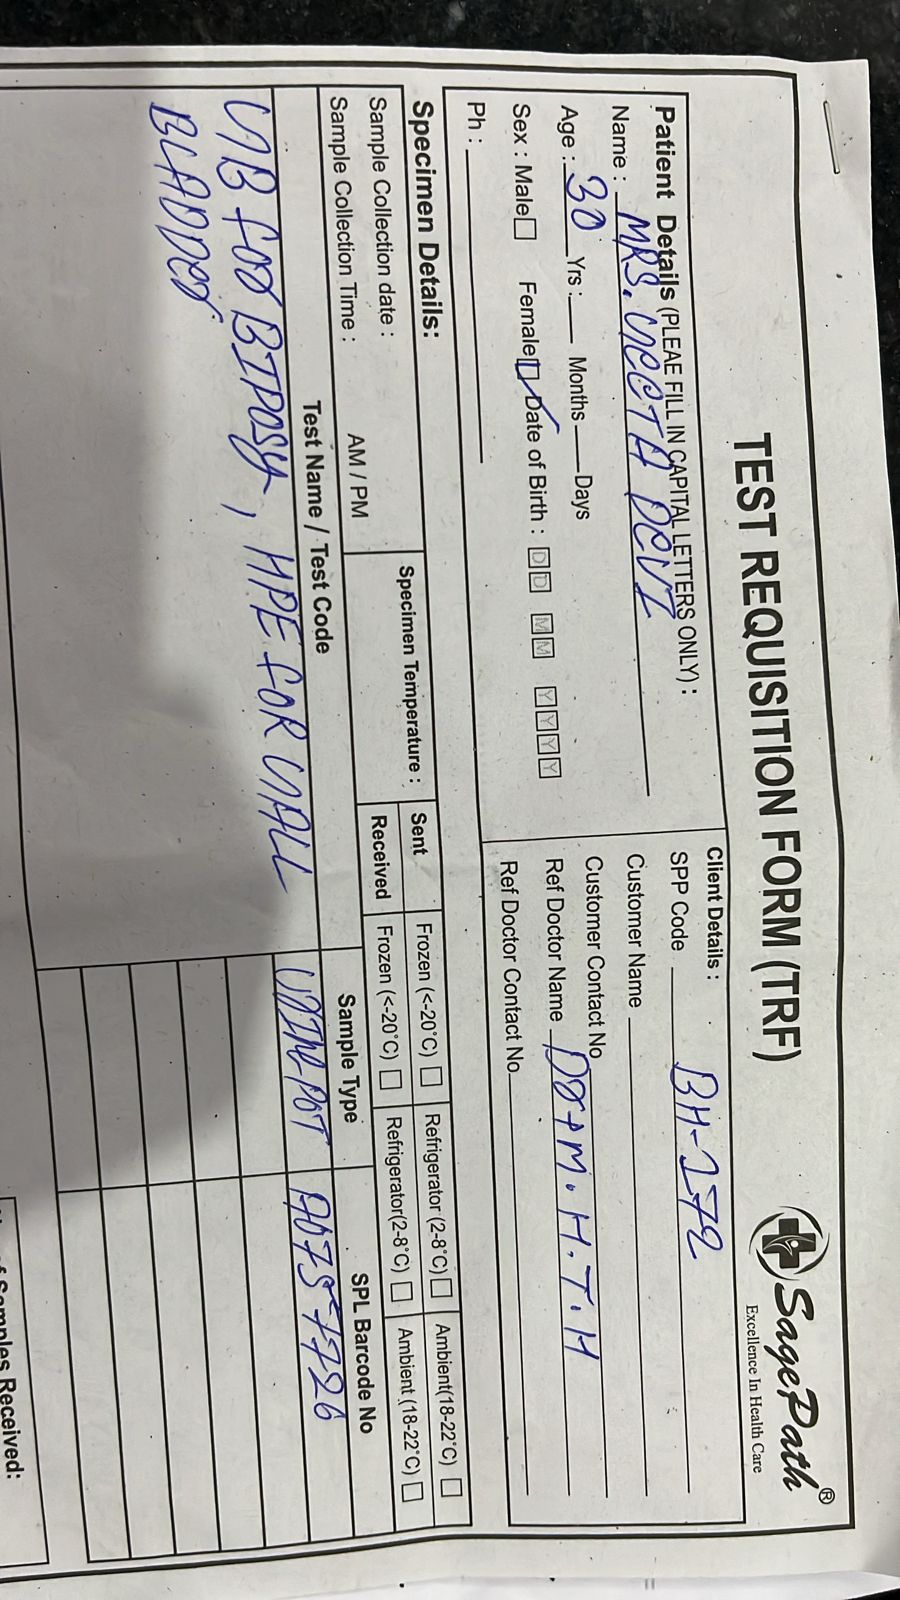 TEST REQUISITION FORM (TRF)
SagePath®
Excellence In Health Care
Patient Details (PLEAE FILL IN CAPITAL LETTERS ONLY) :
Name : MRS. DEVI
Age : 30 Yrs : Months Days
Sex : Male Female Date of Birth : D D M M Y Y Y Y
Ph :
Client Details :
SPP Code BH-172
Customer Name
Customer Contact No
Ref Doctor Name M.H.T.H
Ref Doctor Contact No.
Specimen Details:
Sample Collection date :
Sample Collection Time : AM / PM
Specimen Temperature :
Sent Frozen (<-20°C) Refrigerator (2-8°C) Ambient(18-22°C)
Received Frozen (<-20°C) Refrigerator(2-8°C) Ambient (18-22°C)
Test Name / Test Code Sample Type SPL Barcode No
BIPOSY, HPE FOR A0757726
Samples Received: